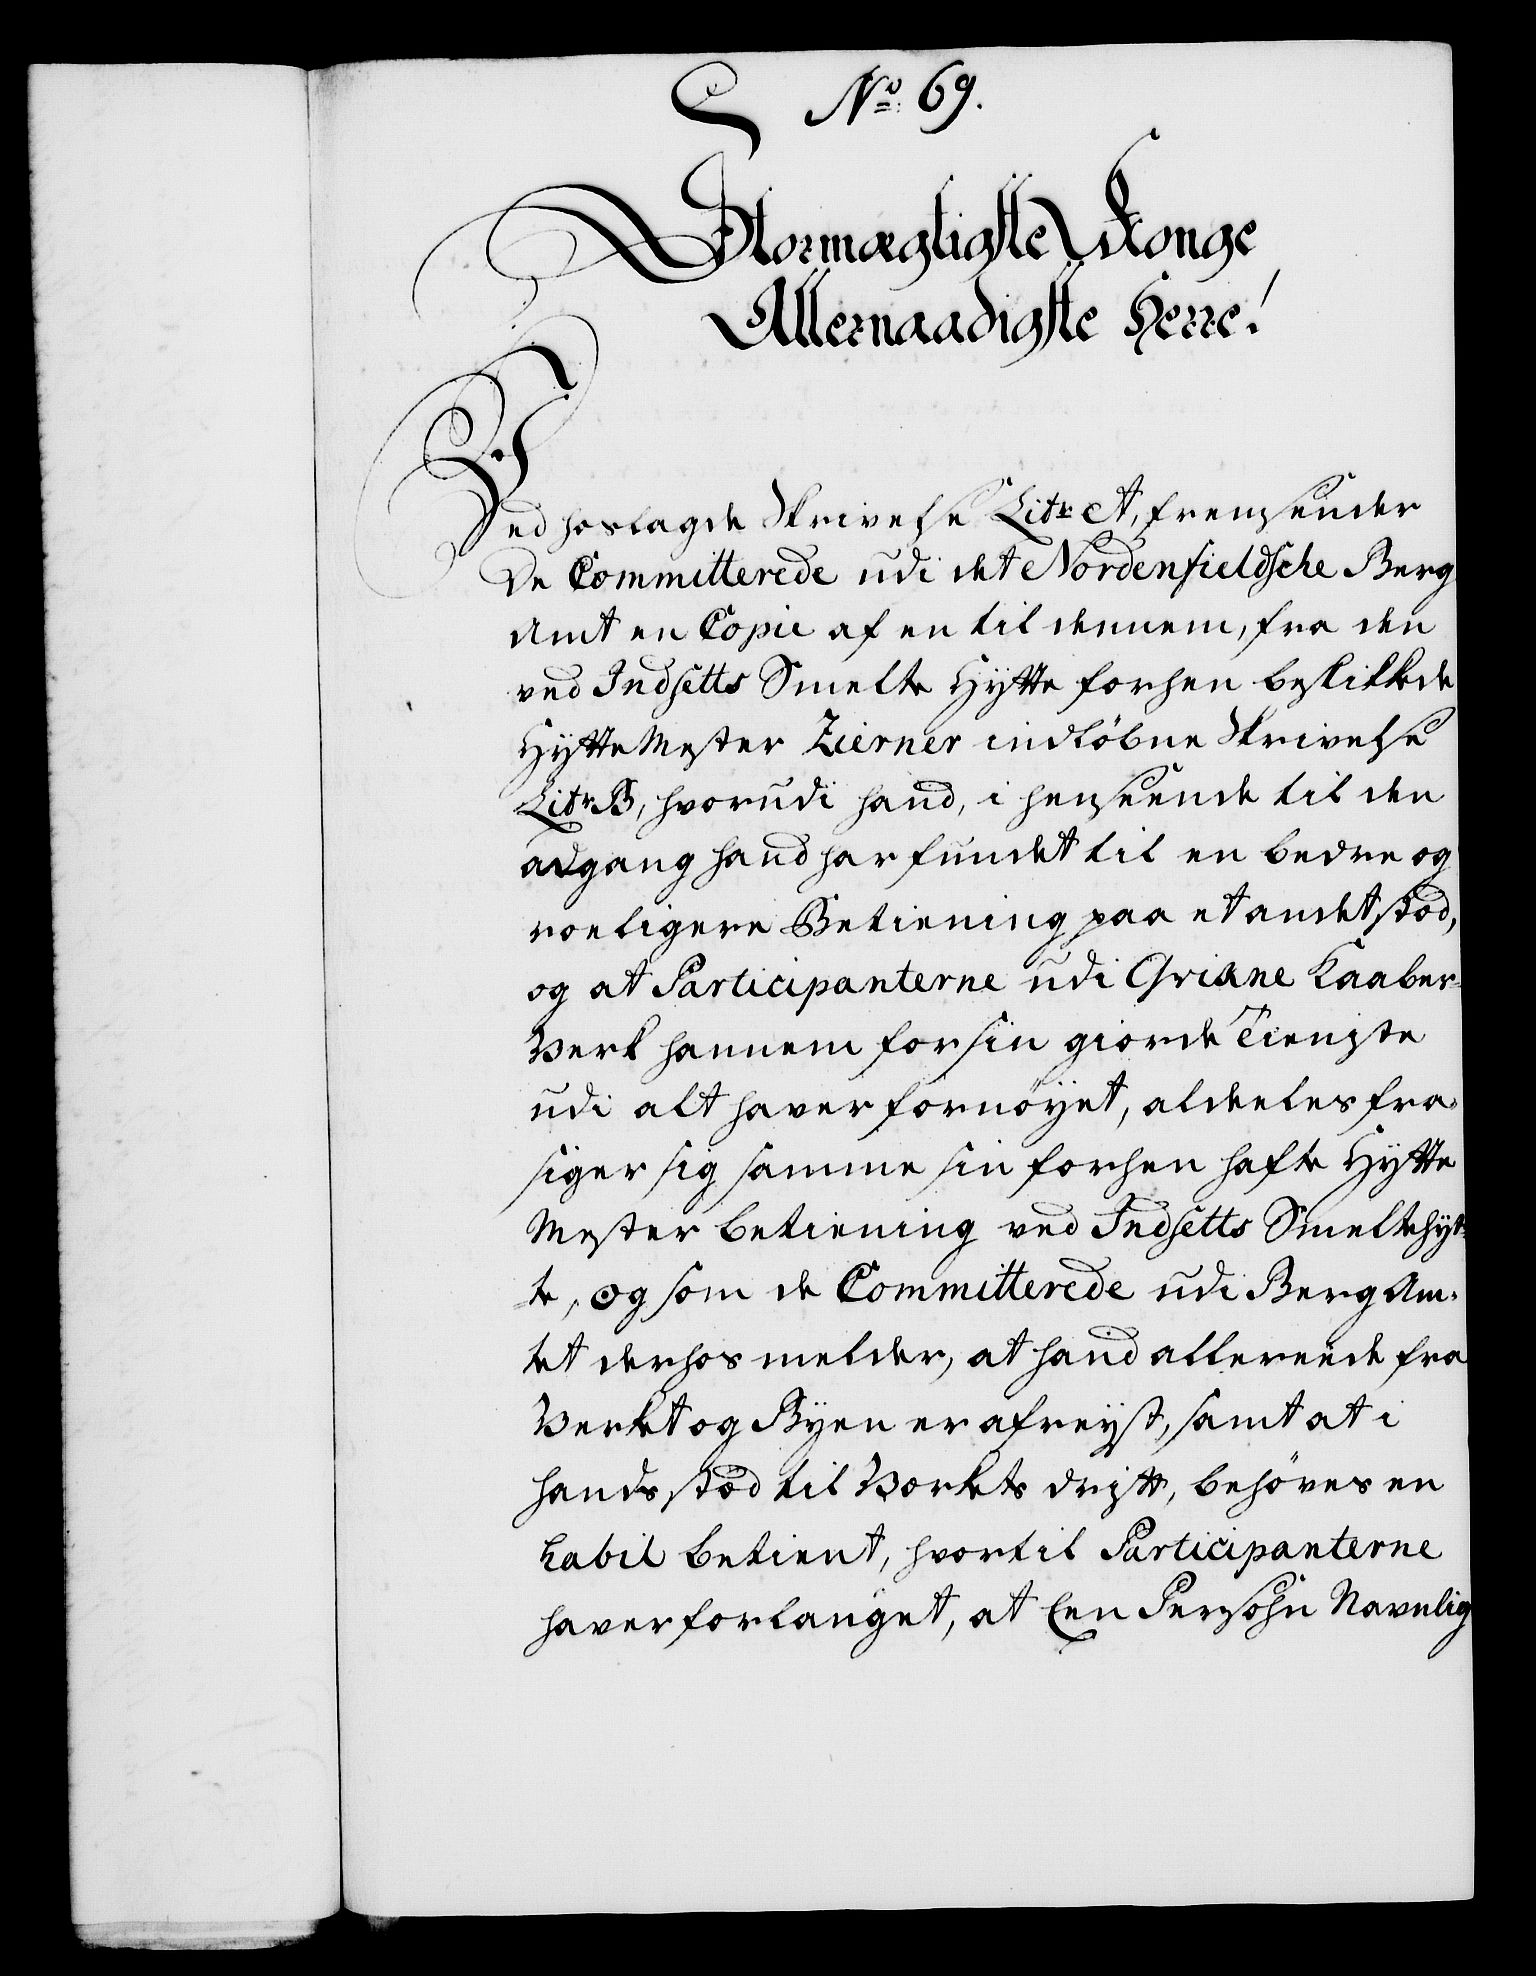 No. 69.
Stormægtigste Konge
Allernaadigste Herre!
Ved hoslagde Skrivelse Litr A, fremsender
De Committerede udi det Nordenfieldsche Berg
Amt en Copie af en til dennem, fra den
ved Indsetts Smelte Hytte forhen beskikkede
Hytte Mester Zierner indløbne Skrivelse
Litr B, hvorudi hand, i henseende til den
adgang hand har fundet til en bedre og
roeligere Betiening paa et andet stæd,
og at Participanterne udi Qvikne Kaaber-
Verk hannem for sin giorde Tieniste
udi alt haver fornöyet, aldeeles fra-
siger sig samme sin forhen hafte Hytte
Mester betiening ved Indsetts Smeltehyt-
te, og som de Committerede udi Berg Am-
tet derhos melder, at hand allereede fra
Verket og Byen er afreyst, samt at i
hands stæd til Verkets drift, behöves en
habil betient, hvortil Participanterne
haver forlanget, at Een Persohn Navnlig